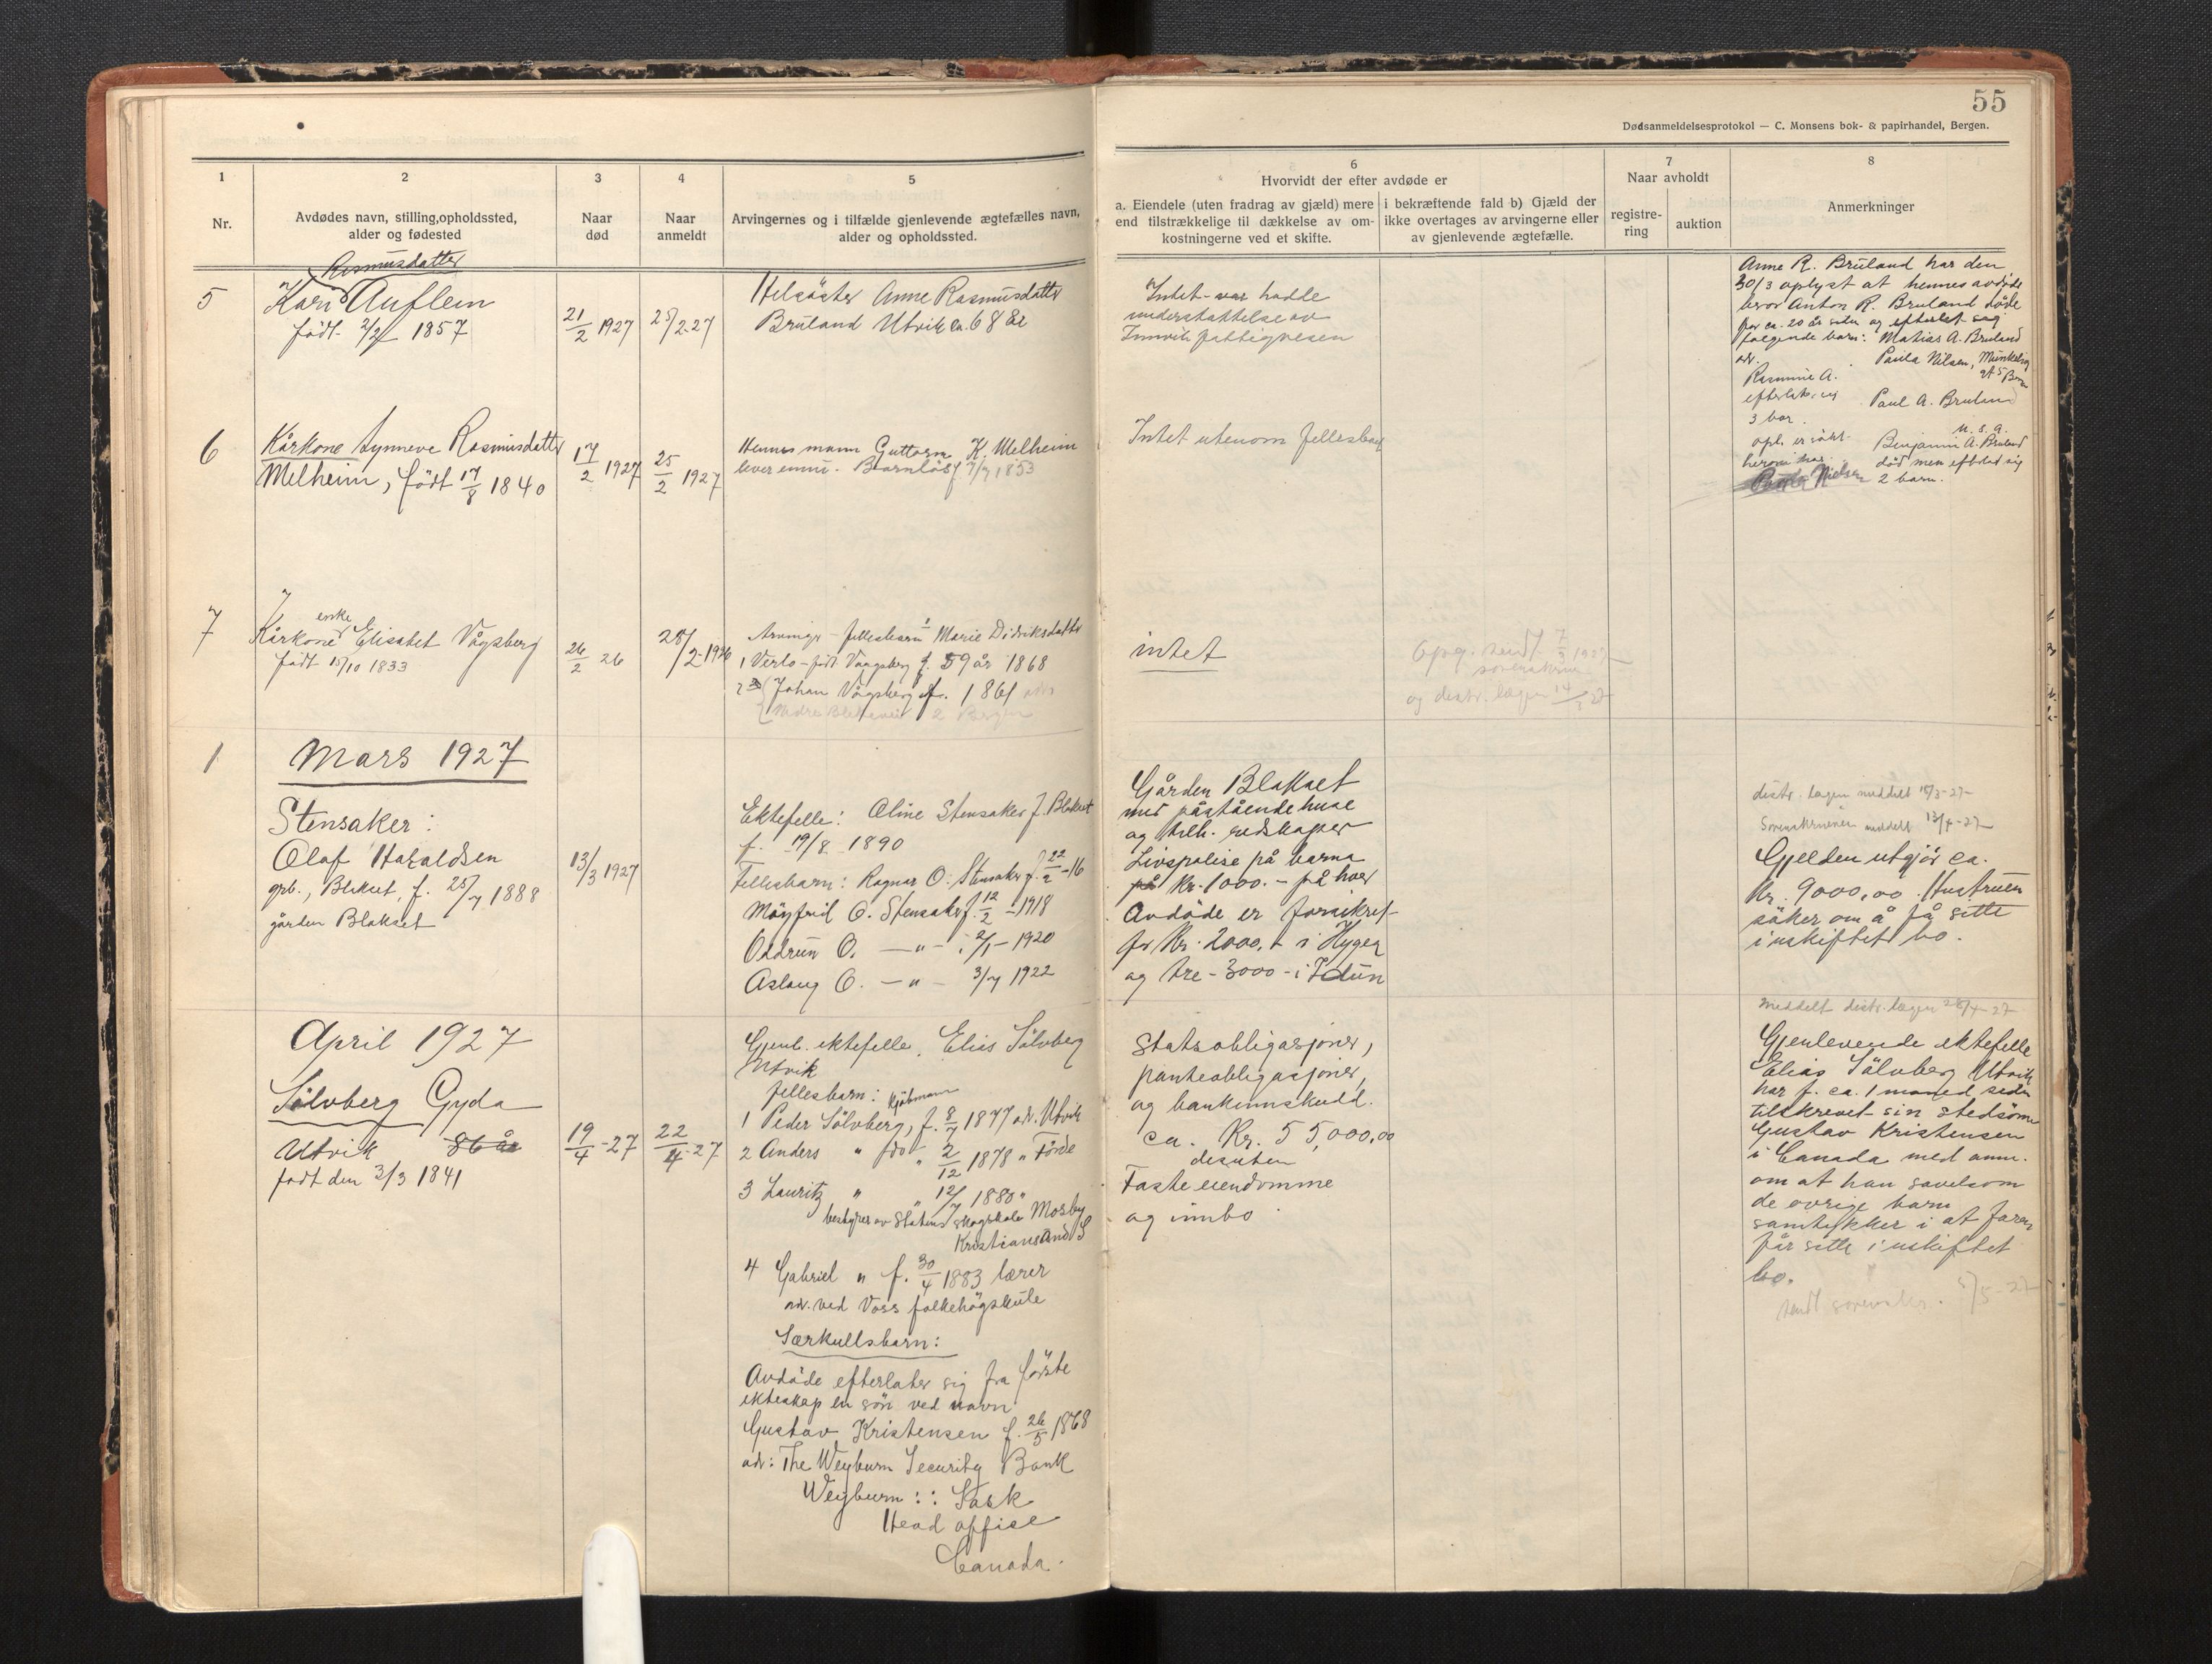 55
Dødsanmeldelsesprotokol — C. Monsens bok- & papirhandel, Bergen.
1
Nr.
2
Avdødes navn, stilling, opholdssted,
alder og fødested
3
Naar
død
4
Naar
anmeldt
5
Arvingernes og i tilfælde gjenlevende ægtefælles navn,
alder og opholdssted.
6
Hvorvidt der efter avdøde er
a. Eiendele (uten fradrag av gjæld) mere
end tilstrækkelige til dækkelse av om-
kostningerne ved et skifte.
i bekræftende fald b) Gjæld der
ikke overtages av arvingerne eller
av gjenlevende ægtefælle.
7
Naar avholdt
registre-
ring
auktion
8
Anmerkninger
5
Rasmusdatter
Kari Auflem
født 2/2 1857
21/2 1927
25/2-27
Helsøster Anne Rasmusdatter
Bruland Utvik ca. 68 år
Intet - var hadde
understøttelse av
Innvik fattigvesen
Anne R. Bruland har den
30/3 oplyst at hennes avdøde
bror Anton R. Bruland døde
for ca. 20 år siden og efterlot seg
følgende barn: Matias A. Bruland
adr.
Paula Nilsen,
Rasmine A.
3 bar.
Paul A. Bruland
U.S.A.
Benjamin A. Bruland
død men efterlot sig
2 barn.
Nielsen
6
Kårkone Synneve Rasmusdatter
Melheim, født 17/8 1840
17/2 1927
25/2 1927
Hennes mann Guttorm K. Melheim
lever ennu. Barnløs f. 7/7 1853
Intet utenom fellesboet
7
enke
Kårkone Elisabet Vågsberg
født 15/10 1833
26/2 26
28/2-1926
Arvinger - fellesbarn Marie Didriksdatter
1 Verlo - født Vaagsberg f. 59 år 1868
2 Johan Vågsberg f. 1861 adr.
2 Bergen
intet
Opg. sendt 7/3 1927
sorenskriv.
og distr. lægen 14/3 27
1
Mars 1927
Stensaker:
Olaf Haraldsen
gbr., Blakset, f. 25/7 1888
gården Blakset
13/3 1927
Ektefelle: Oline Stensaker f. Blakset
f. 19/8 1890
Fellesbarn: Ragnar O. Stensaker f. 22/2 -16
Møyfrid O. Stensaker f. 12/2 - 1918
Oddrun O. — " — 2/1 - 1920
Aslaug O. — " — 3/7 1922
Gården Blakset
med påstående huse
og tilh. redskaper
Livspolise på barna
på Kr. 1000.- på hver
Avdøde er forsikret
for Kr. 2000,- i Hygea
og tre - 3000 - i Idun
distr. lægen meddelt 15/3-27
Sorenskriveren meddelt 13/4-27
Gjelden utgjør ca.
Kr. 9000,00. Hustruen
søker om å få sitte
i uskiftet bo.
April 1927
Sølvberg Gyda
Utvik 86 år
født den 3/3 1841
19/4-27
22/4-27
Gjenl. ektefelle. Elias Sølvberg
Utvik
fellesbarn: kjøbmann
1 Peder Sølvberg, f. 8/7 1877 adr. Utvik
2 Anders " " 2/12 1878 " Førde
3 Lauritz " " 12/7 1880 "
bestyrer av Statens skogskole Mosby
Kristiansand S
4 Gabriel " f. 30/4 1883 lærer
adr. ved Voss folkehøgskule
Særkullsbarn:
Avdøde efterlater sig fra første
ekteskap en søn ved navn
Gustav Kristensen f. 26/5 1868
adr: The Weyburn Security Bank
Weyburn :: Sask
Head office
Canada.
Statsobligasjoner,
panteobligasjoner,
og bankinnskudd.
ca. Kr. 55,000,00
desuten
Faste eiendomme
og innbo
Meddelt distr. lægen 28/4-27
Gjenlevende ektefelle
Elias Sølvberg Utvik
har f. ca. 1 maned siden
tilskrevet sin stedsønn
Gustav Kristensen
i Canada med anm.
om at han savelsom
de øvrige barn
samtykker i at faren
får sitte i uskiftet
bo.
sendt sorenskr. 5/5-27